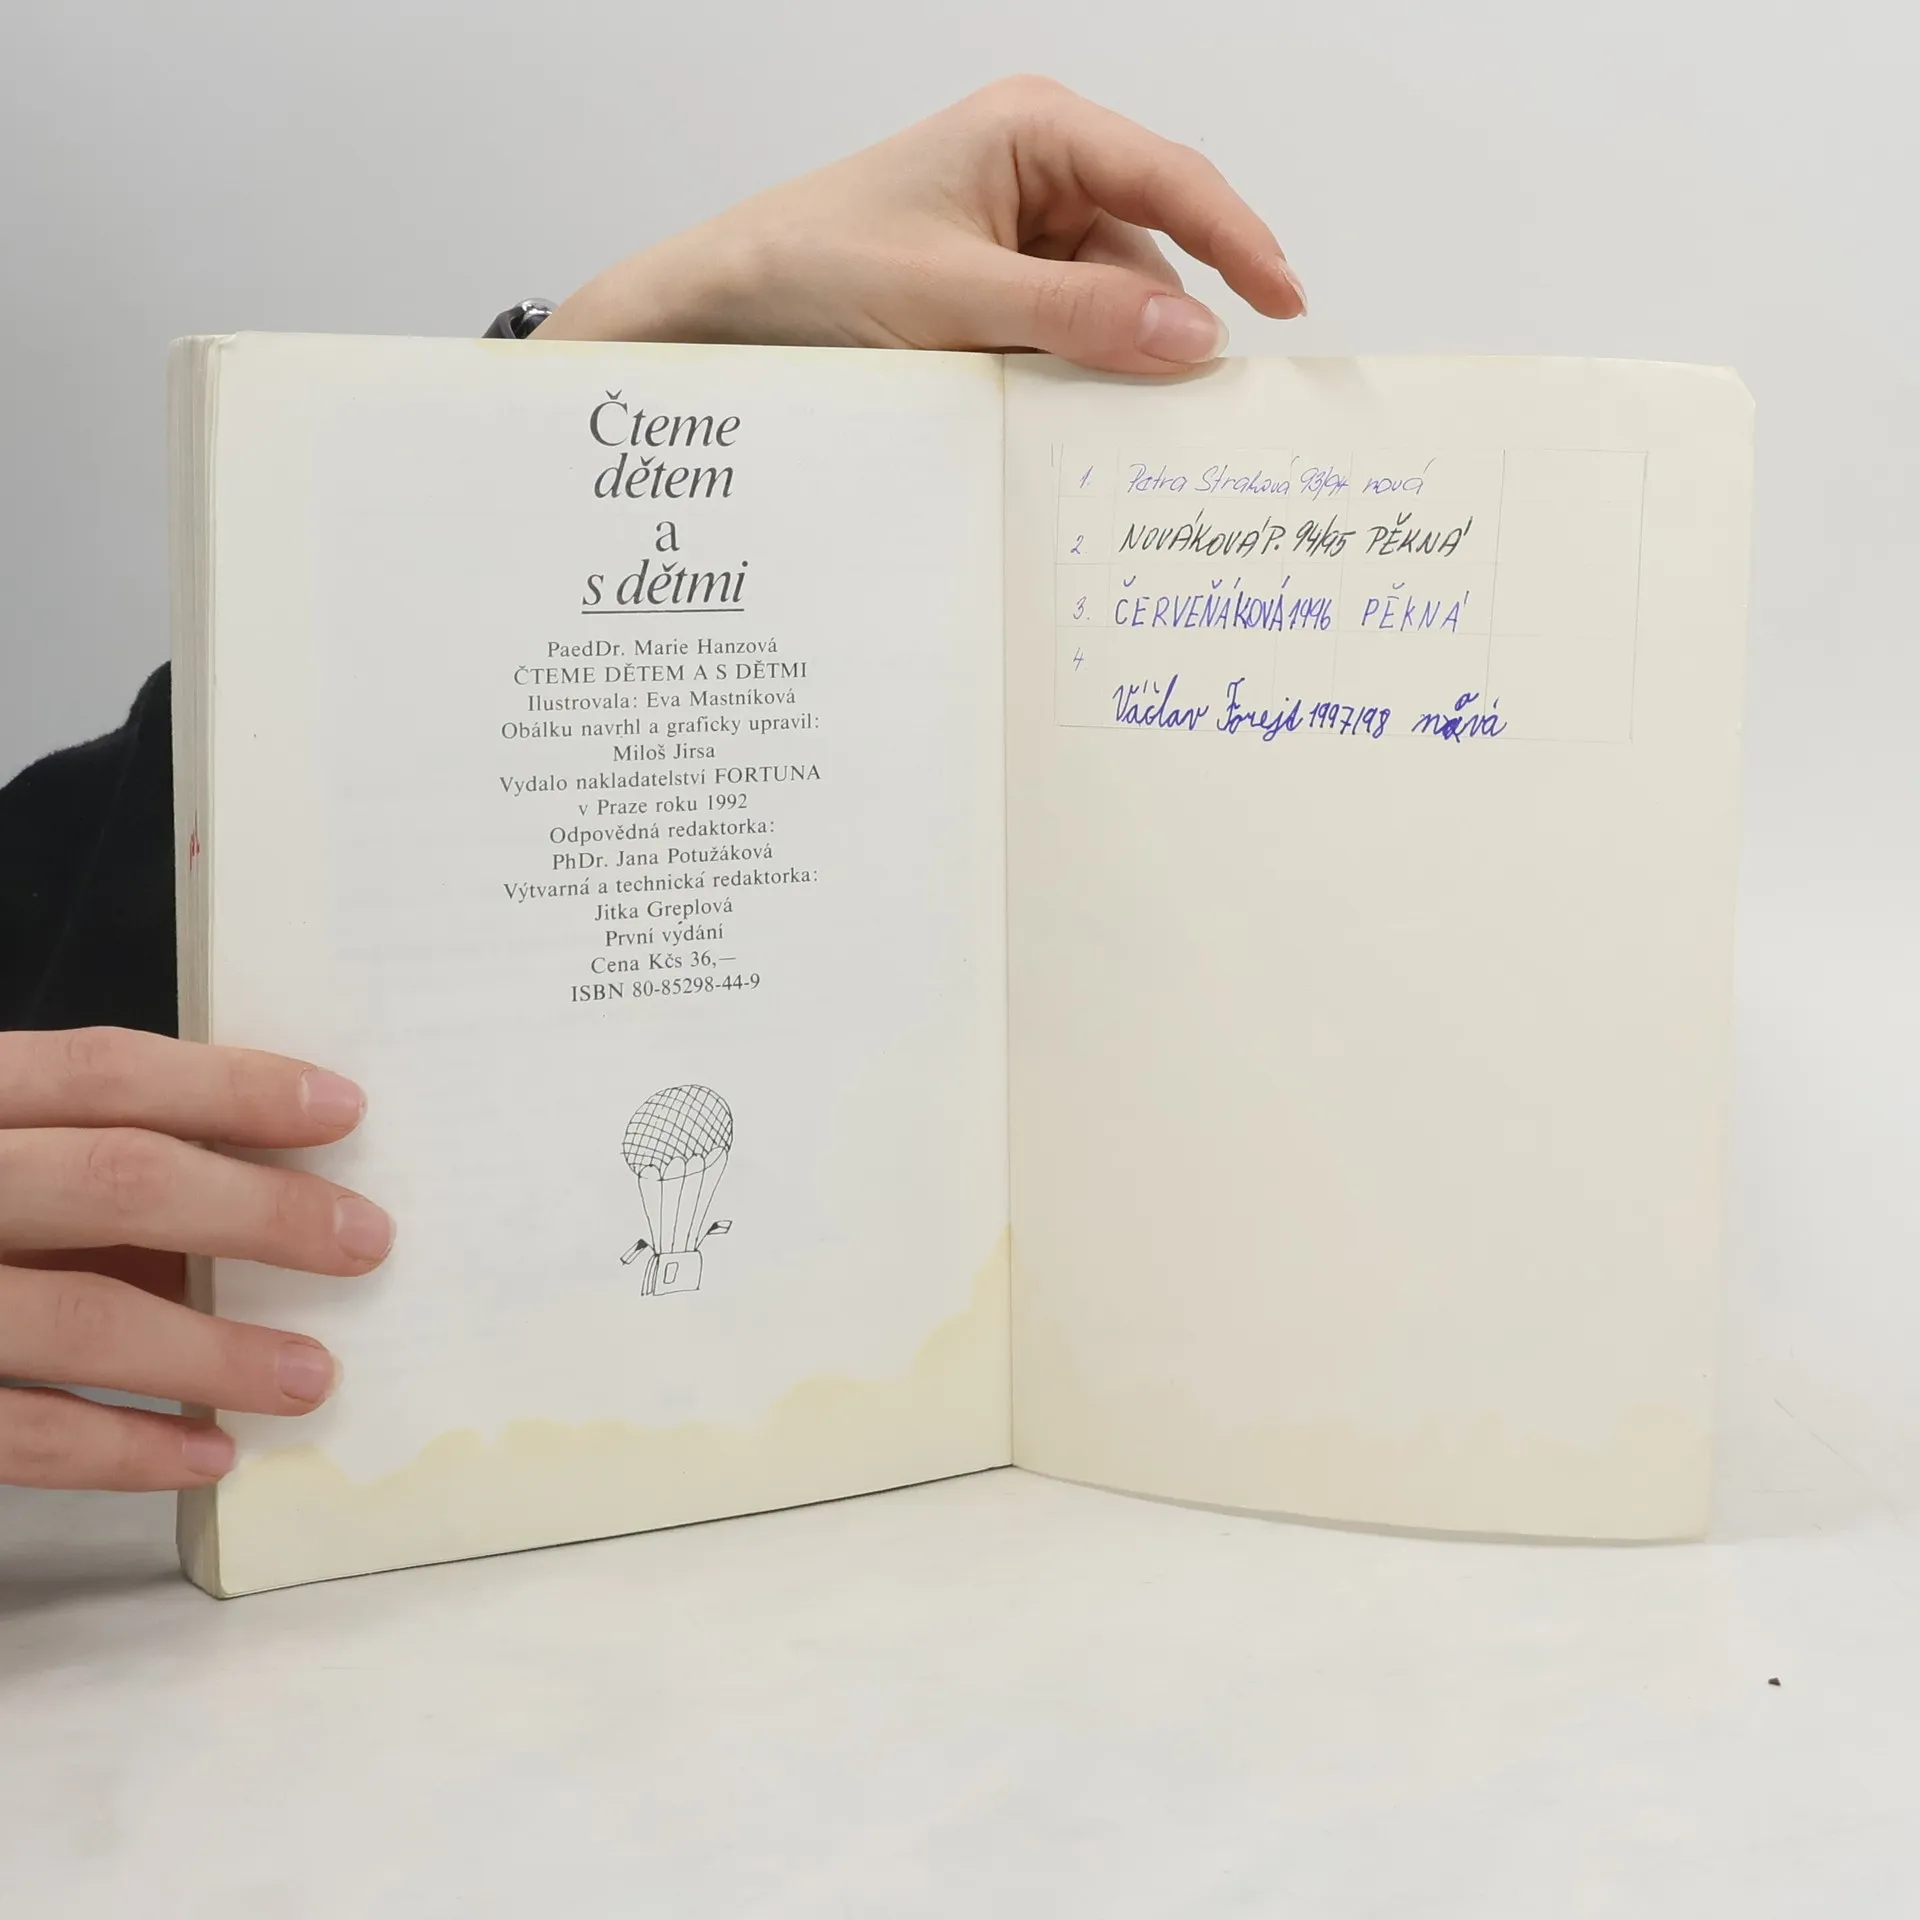 Čteme
dětem
a
s dětmi
PaedDr. Marie Hanzová
ČTEME DĚTEM A S DĚTMI
Ilustrovala: Eva Mastníková
Obálku navrhl a graficky upravil:
Miloš Jirsa
Vydalo nakladatelství FORTUNA
v Praze roku 1992
Odpovědná redaktorka:
PhDr. Jana Potužáková
Výtvarná a technická redaktorka:
Jitka Greplová
První vydání
Cena Kčs 36,—
ISBN 80-85298-44-9
1. Petra Straková 93/94 nová
2. NOVÁKOVÁ P. 94/95 PĚKNÁ
3. ČERVEŇÁKOVÁ 1996 PĚKNÁ
4
Václav Forejt 1997/98